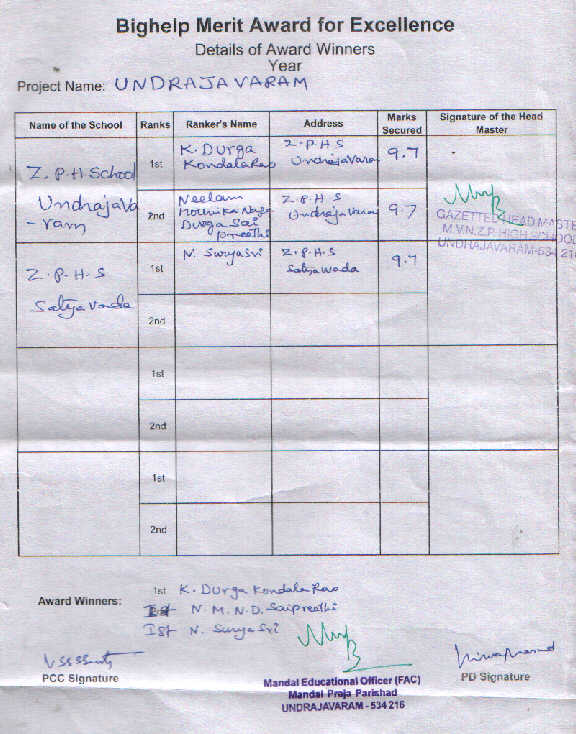 Bighelp Merit Award for Excellence
Details of Award Winners
Year
Project Name: UNDRAJAVARAM
Name of the School Ranks Ranker's Name Address Marks Secured Signature of the Head Master
Z.P.H School Undrajava -ram 1st K. Durga Kondala Rao Z.P.H.S Undrajavara 9.7
2nd Neelam Mounika Naga Durga Sai preethi Z.P.H.S Undrajavaram 9.7
GAZETTED HEAD MASTE
M.V.N.Z.P. HIGH SCHOOL
UNDRAJAVARAM-534 216
Z.P.H.S Satyavada 1st N. SuryaSri Z.P.H.S Satyawada 9.7
2nd
1st
2nd
1st
2nd
Award Winners: 1st K. Durga Kondala Rao
Ist N. M. N. D. Saipreethi
Ist N. Surya Sri
PCC Signature
Mandal Educational Officer (FAC)
Mandal Praja Parishad
UNDRAJAVARAM - 534 216
PD Signature